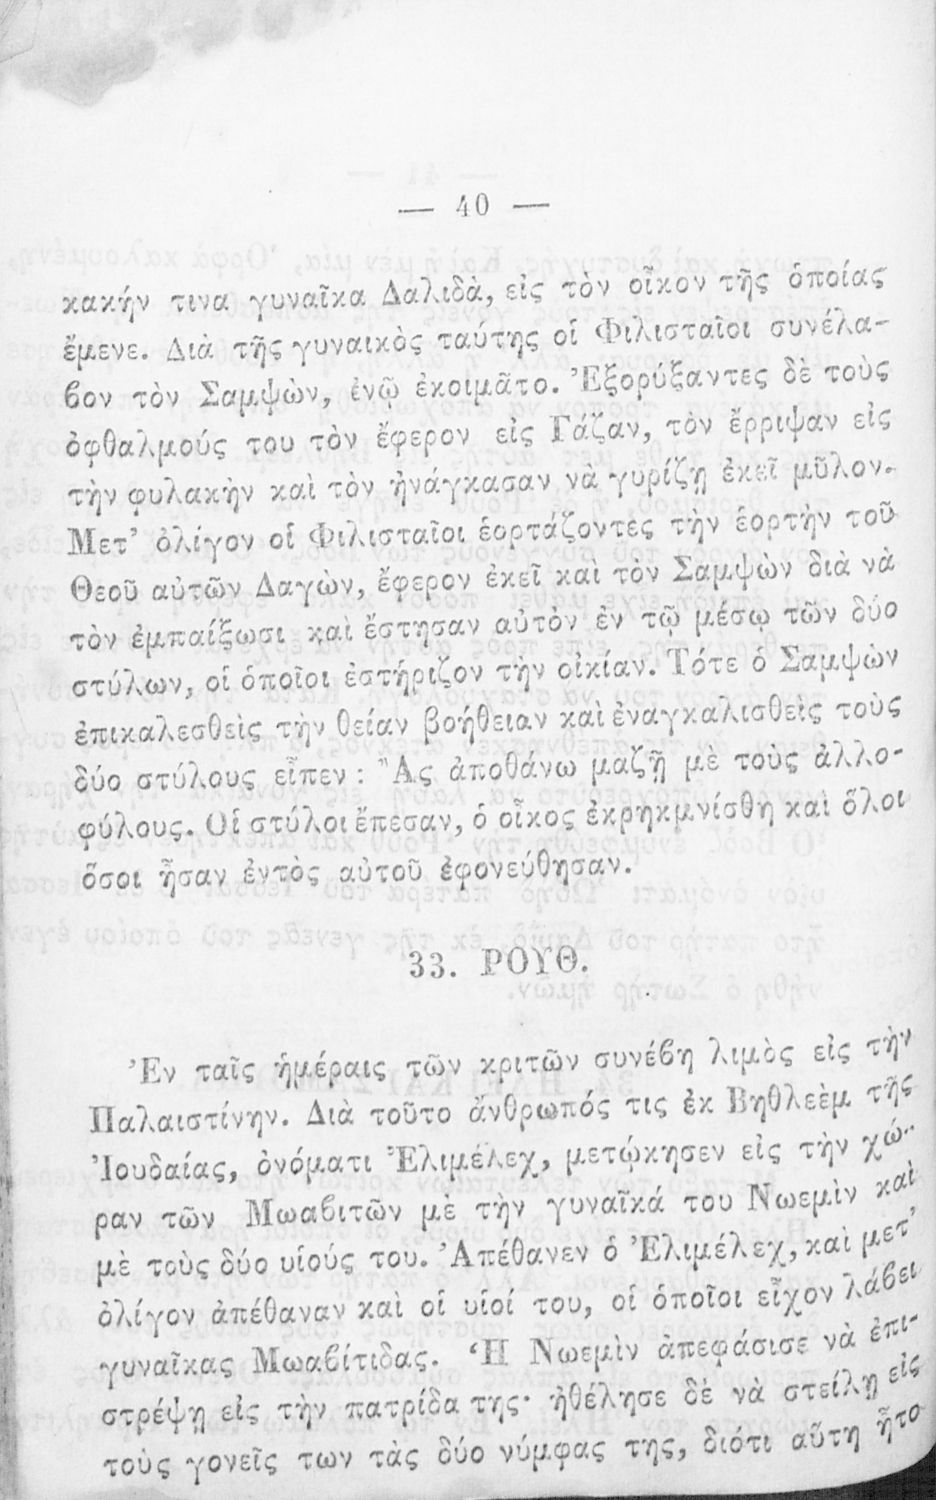 — 40 —
κακήν τινα γυναῖκα Δαλιδὰ, εἰς τὸν οἶκον τῆς ὁποίας
ἔμενε. Διὰ τῆς γυναικὸς ταύτης οἱ Φιλισταῖοι συνέλα-
βον τὸν Σαμψὼν, ἐνῷ ἐκοιμᾶτο. Ἐξορύξαντες δὲ τοὺς
ὀφθαλμούς του τὸν ἔφερον εἰς Γάζαν, τὸν ἔρριψαν εἰς
τὴν φυλακὴν καὶ τὸν ἠνάγκασαν νὰ γυρίζῃ ἐκεῖ μῦλον.
Μετ’ ὀλίγον οἱ Φιλισταῖοι ἑορτάζοντες τὴν ἑορτὴν τοῦ
Θεοῦ αὑτῶν Δαγὼν, ἔφερον ἐκεῖ καὶ τὸν Σαμψὼν διὰ νὰ
τὸν ἐμπαίξωσι καὶ ἔστησαν αὐτὸν ἐν τῷ μέσῳ τῶν δύο
στύλων, οἱ ὁποῖοι ἐστήριζον τὴν οἰκίαν. Τότε ὁ Σαμψὼν
ἐπικαλεσθεὶς τὴν θείαν βοήθειαν καὶ ἐναγκαλισθεὶς τοὺς
δύο στύλους εἶπεν : Ἂς ἀποθάνω μαζῇ μὲ τοὺς ἀλλο-
φύλους. Οἱ στύλοι ἔπεσαν, ὁ οἶκος ἐκρηκμνίσθη καὶ ὅλοι
ὅσοι ἦσαν ἐντὸς αὐτοῦ ἐφονεύθησαν.
33. ΡΟΥΘ.
Ἐν ταῖς ἡμέραις τῶν κριτῶν συνέβη λιμὸς εἰς τὴν
Παλαιστίνην. Διὰ τοῦτο ἄνθρωπός τις ἐκ Βηθλεὲμ τῆς
Ἰουδαίας, ὀνόματι Ἐλιμέλεχ, μετῴκησεν εἰς τὴν χώ-
ραν τῶν Μωαβιτῶν μὲ τὴν γυναῖκά του Νωεμὶν καὶ
μὲ τοὺς δύο υἱούς του. Ἀπέθανεν ὁ Ἐλιμέλεχ, καὶ μετ’
ὀλίγον ἀπέθαναν καὶ οἱ υἱοί του, οἱ ὁποῖοι εἶχον λάβει
γυναῖκας Μωαβίτιδας. Ἡ Νωεμὶν ἀπεφάσισε νὰ ἐπι-
στρέψῃ εἰς τὴν πατρίδα της· ἠθέλησε δὲ νὰ στείλῃ εἰς
τοὺς γονεῖς των τὰς δύο νύμφας της, διότι αὕτη ἦτο